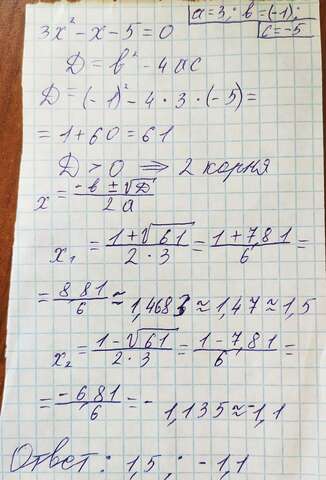 3x² - x - 5 = 0
a = 3; b = (-1);
c = -5
D = b² - 4ac
D = (-1)² - 4 · 3 · (-5) =
= 1 + 60 = 61
D > 0 ⇒ 2 корня
x = (-b ± √D) / 2a
x₁ = (1 + √61) / (2 · 3) = (1 + 7,81) / 6 =
= 8,81 / 6 ≈ 1,4683 ≈ 1,47 ≈ 1,5
x₂ = (1 - √61) / (2 · 3) = (1 - 7,81) / 6 =
= -6,81 / 6 = - 1,135 ≈ -1,1
Ответ: 1,5 ; -1,1